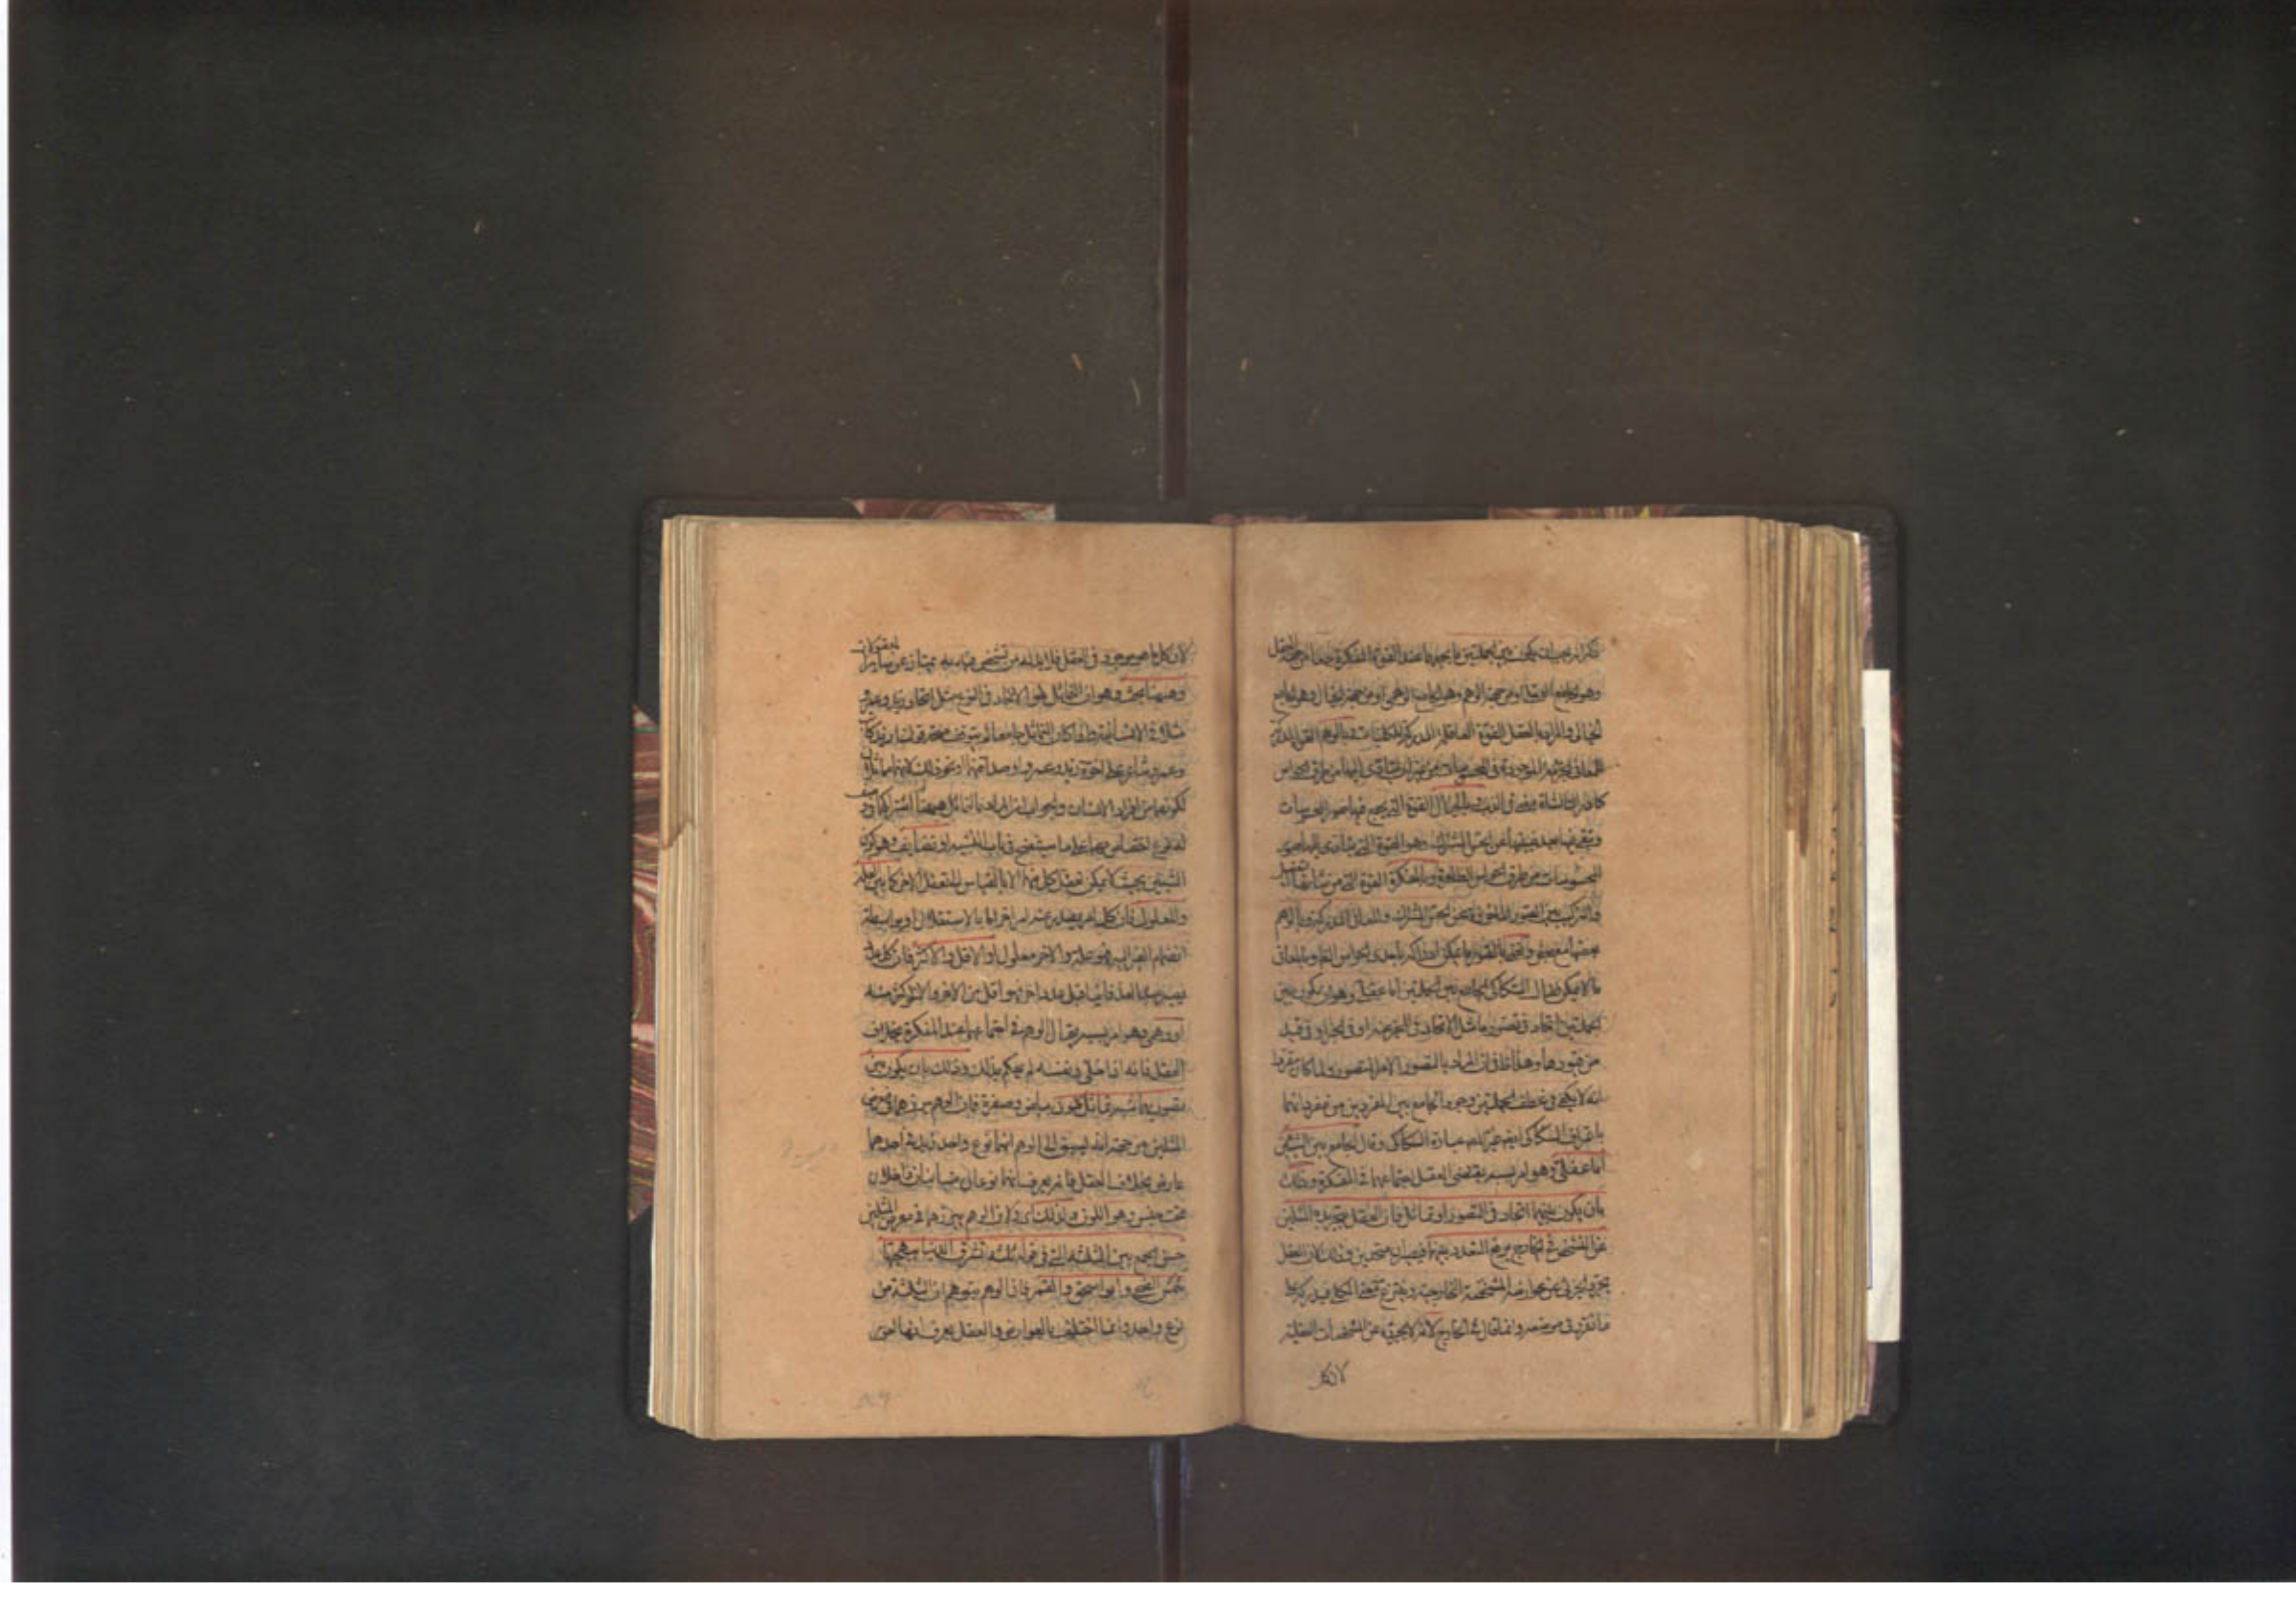 ذكر انه يجب ان يكون بين الجملتين ما يجمعهما عند القوة المفكرة جمعا من جهة العقل
وهو الجامع العقلي او من جهة الوهم وهو الجامع الوهمي او من جهة الخيال وهو الجامع
الخيالي والمراد بالعقل القوة العاقلة المدركة للكليات وبالوهم القوة المدركة
للمعاني الجزئية الموجودة في المحسوسات من غير ان تتأدى اليها من طرق الحواس
كادراك الشاة معنى في الذئب وبالخيال القوة التي تجتمع فيها صور المحسوسات
وتبقى فيها بعد غيبتها عن الحس المشترك وهو القوة التي تتأدى اليها صور
المحسوسات من طرق الحواس الظاهرة وبالمفكرة القوة التي من شأنها التفصيل
والتركيب بين الصور الماخوذة عن الحس المشترك والمعاني المدركة بالوهم
بعضها مع بعض ونعني بالصور ما يمكن ادراكه باحدى الحواس الظاهرة وبالمعاني
ما لا يمكن فقال السكاكي الجامع بين الجملتين اما عقلي وهو ان يكون بين
الجملتين اتحاد في تصور ما مثل الاتحاد في المخبر عنه او في الخبر او في قيد
من قيودهما وهذا ظاهر في ان المراد بالتصور الامر المتصور ولما كان مقررا
انه لا يكفي في عطف الجملتين وجود الجامع بين المفردين من مفرداتهما
باعتراف السكاكي ايضا غير المصـ عبارة السكاكي وقال الجامع بين الشيئين
اما عقلي وهو امر بسببه يقتضي العقل اجتماعهما في المفكرة وذلك
بان يكون بينهما اتحاد في التصور او تماثل فان العقل بتجريده المثلين
عن التشخص في الخارج يرفع التعدد بينهما فيصيران متحدين وذلك لان العقل
يجرد الجزئي عن عوارضه المشخصة الخارجية وينتزع منه المعنى الكلي فيدركه على
ما تقرر في موضعه وانما قال في الخارج لانه لا يجرده عن المشخصات العقلية
لان كل
لان كل ما هو موجود في العقل فلا بد له من تشخص فيه به يمتاز عن سائر المعقولات
وههنا بحث وهو ان التماثل هو الاتحاد في النوع مثل اتحاد زيد وعمرو
مثلا في الانسانية واذا كان التماثل جامعا لم يتوقف صحة قولنا زيد كاتب
وعمرو شاعر على اخوة زيد وعمرو او صداقتهما او نحو ذلك لانهما متماثلان
لكونهما من افراد الانسان والجواب ان المراد بالتماثل ههنا اشتراكهما في وصف
له نوع اختصاص بهما على ما سيتضح في باب التشبيه او تضايف وهو كون
الشيئين بحيث لا يمكن تعقل كل منهما الا بالقياس الى تعقل الاخر كما بين العلة
والمعلول فان كل امر يصدر عنه امر اخر اما بالاستقلال او بواسطة
انضمام الغير اليه فهو علة والاخر معلول او الاقل والاكثر فان كل عدد
يصير عند العد فانيا قبل عدد اخر فهو اقل من الاخر والاخر اكثر منه
او وهمي وهو امر بسببه يحتال الوهم في اجتماعهما عند المفكرة بخلاف
العقل فانه اذا خلي ونفسه لم يحكم بذلك وذلك بان يكون بين
تصوريهما شبه تماثل كلوني بياض وصفرة فان الوهم يبرزهما في معرض
المثلين من جهة انه يسبق الى الوهم انهما نوع واحد زيد في احدهما
عارض بخلاف العقل فانه يعرف انهما نوعان متباينان داخلان
تحت جنس وهو اللون ولذلك اي ولان الوهم يبرزهما في معرض المثلين
حسن الجمع بين الثلثة التي في قوله ثلثة تشرق الدنيا ببهجتها
شمس الضحى وابو اسحق والقمر فان الوهم يتوهم ان الثلثة من
نوع واحد وانما اختلفت بالعوارض والعقل يعرف انها امور